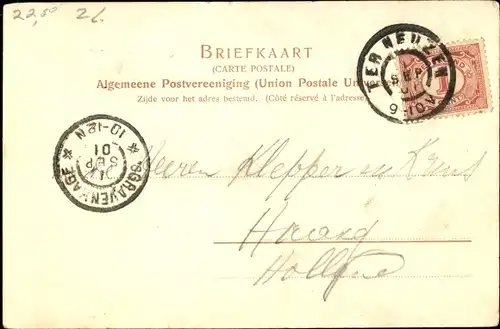 22,50 26
BRIEFKAART
(CARTE POSTALE)
Algemeene Postvereeniging (Union Postale Universelle)
Zijde voor het adres bestemd. (Côté réservé à l'adresse)
TER NEUZEN
SEP
01
9-10.V
'SGRAVENHAGE
SEP
01
10-12N
Heeren Klepper en
Haag